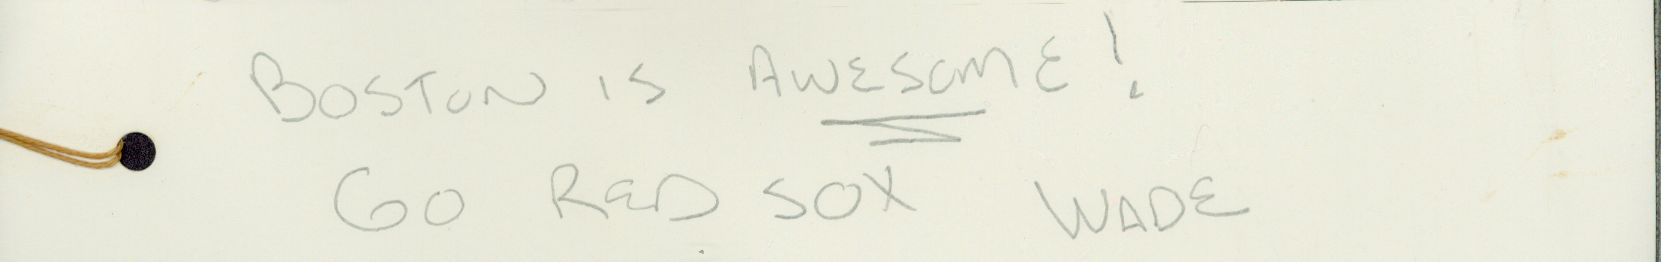 BOSTON IS AWESOME!
GO RED SOX WADE